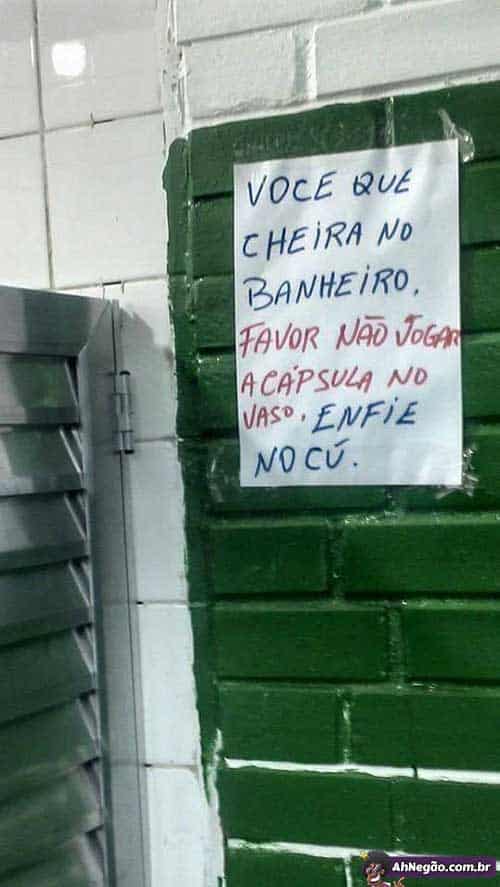 VOCE QUE
CHEIRA NO
BANHEIRO.
FAVOR NÃO JOGAR
A CÁPSULA NO
VASO. ENFIE
NO CÚ.
AhNegão.com.br